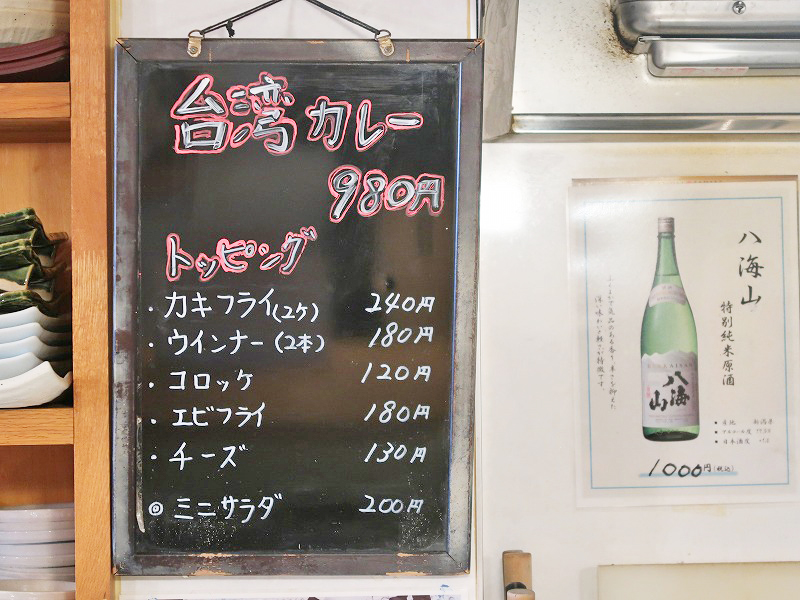 台湾カレー
980円
トッピング
・カキフライ(2ケ) 240円
・ウインナー(2本) 180円
・コロッケ 120円
・エビフライ 180円
・チーズ 130円
◎ミニサラダ 200円
八海山
特別純米原酒
八海山
● 産地 新潟県
● アルコール度
● 日本酒度
1000円(税込)